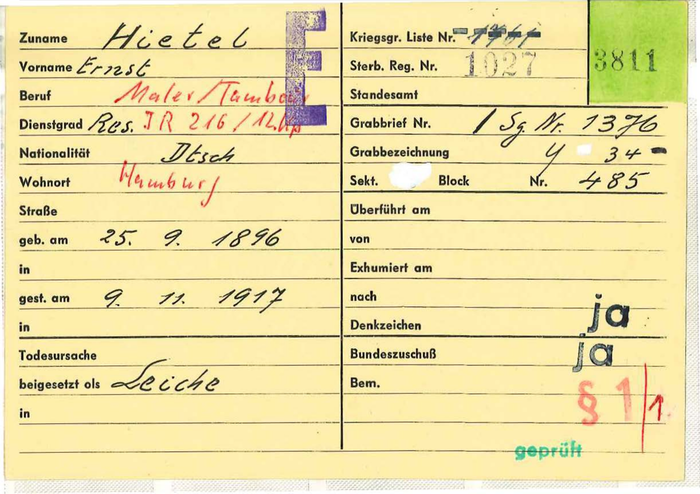 Zuname Hietel
Vorname Ernst
Beruf Maler/Tambour
Dienstgrad Res. IR 216/12.Kp
Nationalität Dtsch
Wohnort Hamburg
Straße
geb. am 25. 9. 1896
in
gest. am 9. 11. 1917
in
Todesursache
beigesetzt als Leiche
in
E
Kriegsgr. Liste Nr.
Sterb. Reg. Nr. 1027
3811
Standesamt
Grabbrief Nr. / Sg. Nr. 1376
Grabbezeichnung Y 34 -
Sekt. Block Nr. 485
Überführt am
von
Exhumiert am
nach
Denkzeichen ja
Bundeszuschuß ja
Bem. § 1/1.
geprüft